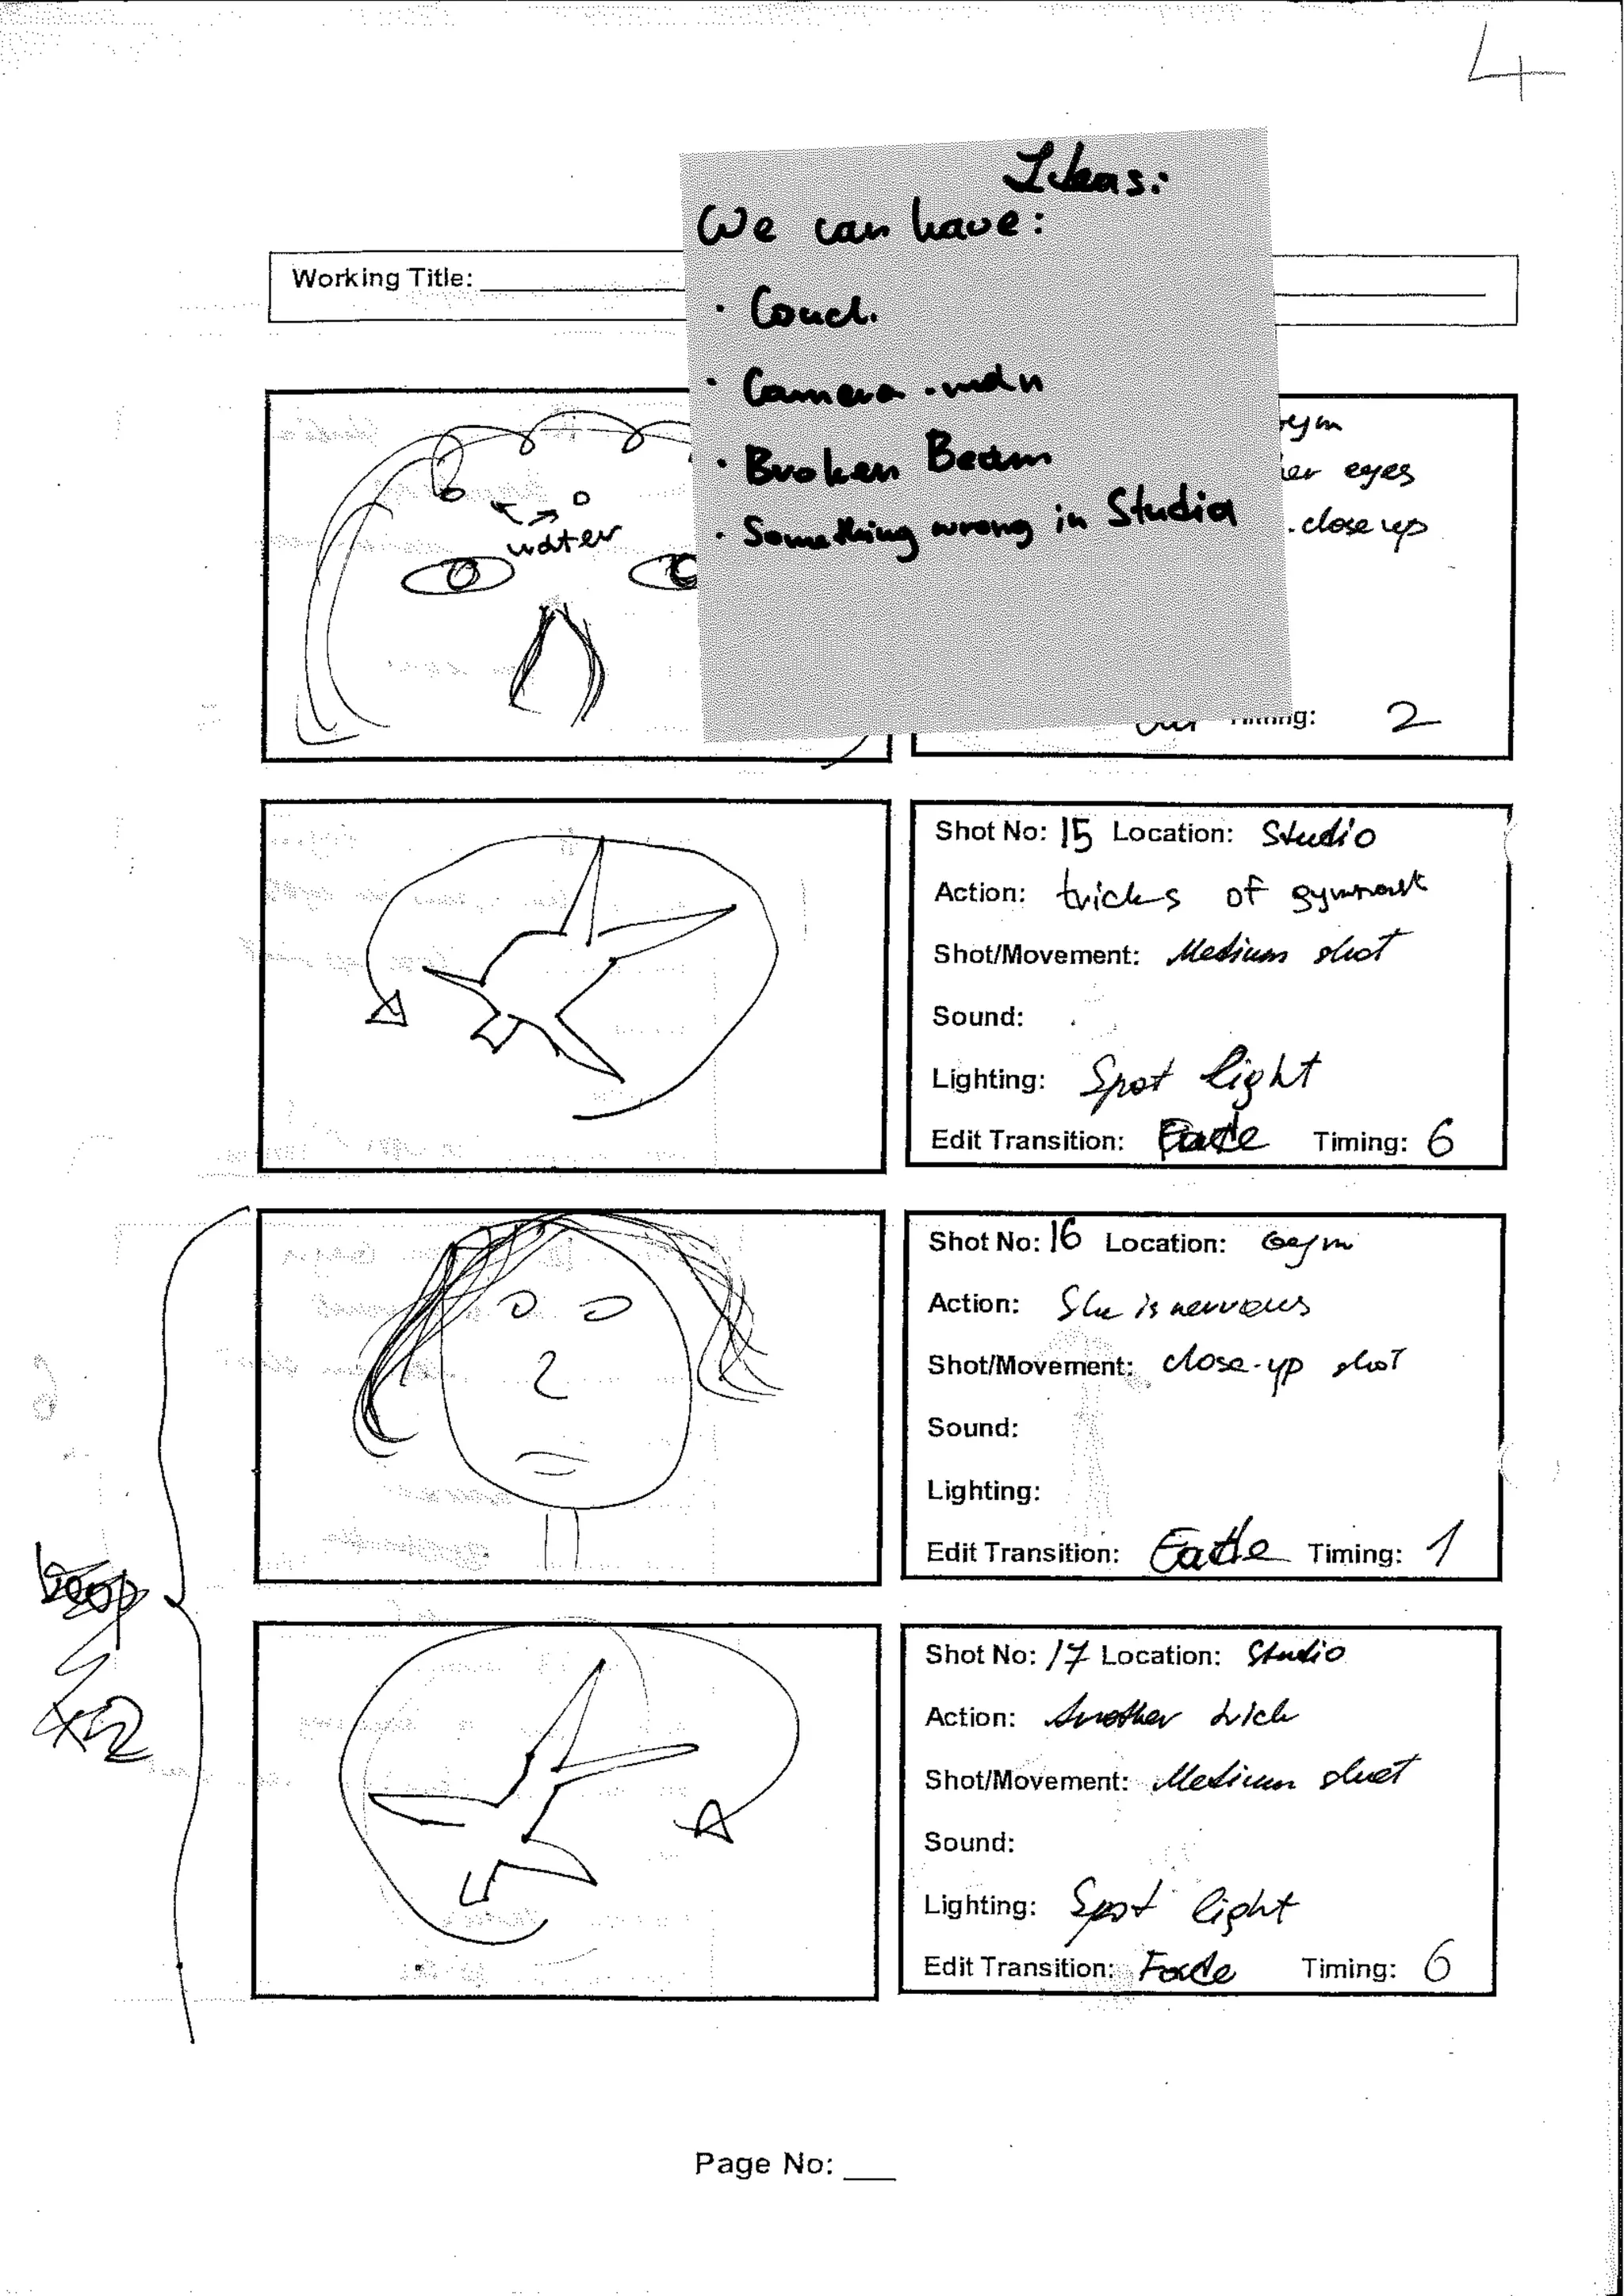 4
Ideas:
We can have:
· Couch.
· Camera-man
· Broken Beam
· Something wrong in Studio
Working Title:
water
eyes
close up
2
Shot No: 15 Location: Studio
Action: tricks of gymnast
Shot/Movement: Medium shot
Sound:
Lighting: Spot light
Edit Transition: Fade Timing: 6
Shot No: 16 Location: Gym
Action: She is nervous
Shot/Movement: close-up shot
Sound:
Lighting:
Edit Transition: Fade Timing: 1
Shot No: 17 Location: Studio
Action: Another trick
Shot/Movement: Medium shot
Sound:
Lighting: Spot light
Edit Transition: Fade Timing: 6
Page No: